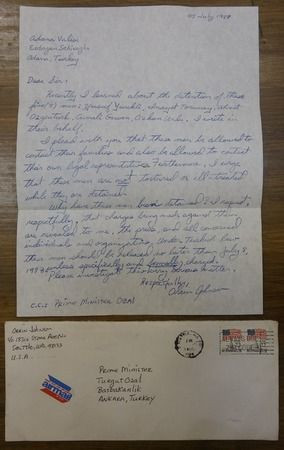 05 July 1988
Adana Valisi
Erdogan
Adana, Turkey
Dear Sir:
Recently I learned about the detention of these
five(5) men:
I write in
their behalf.
I plead with you that these men be allowed to
contact their families and also be allowed to contact
their own legal representatives. Furthermore, I urge
that these men are not tortured or ill-treated
while they are detained.
Why have these men been detained? I request,
respectfully, that charges being made against them
are revealed to me, the press, and all concerned
individuals and organizations. Under Turkish law
these men should be released no later than July 8,
1988 unless specifically and formally charged.
Please investigate this very serious matter.
Respectfully,
Orrin Johnson
C.C.: Prime Minister OZAL
Orrin Johnson
Stone Ave N.
Seattle, WA. 98133
U.S.A.
airmail
Prime Minister
Turgut Ozal
Basbakanlik
Ankara, Turkey